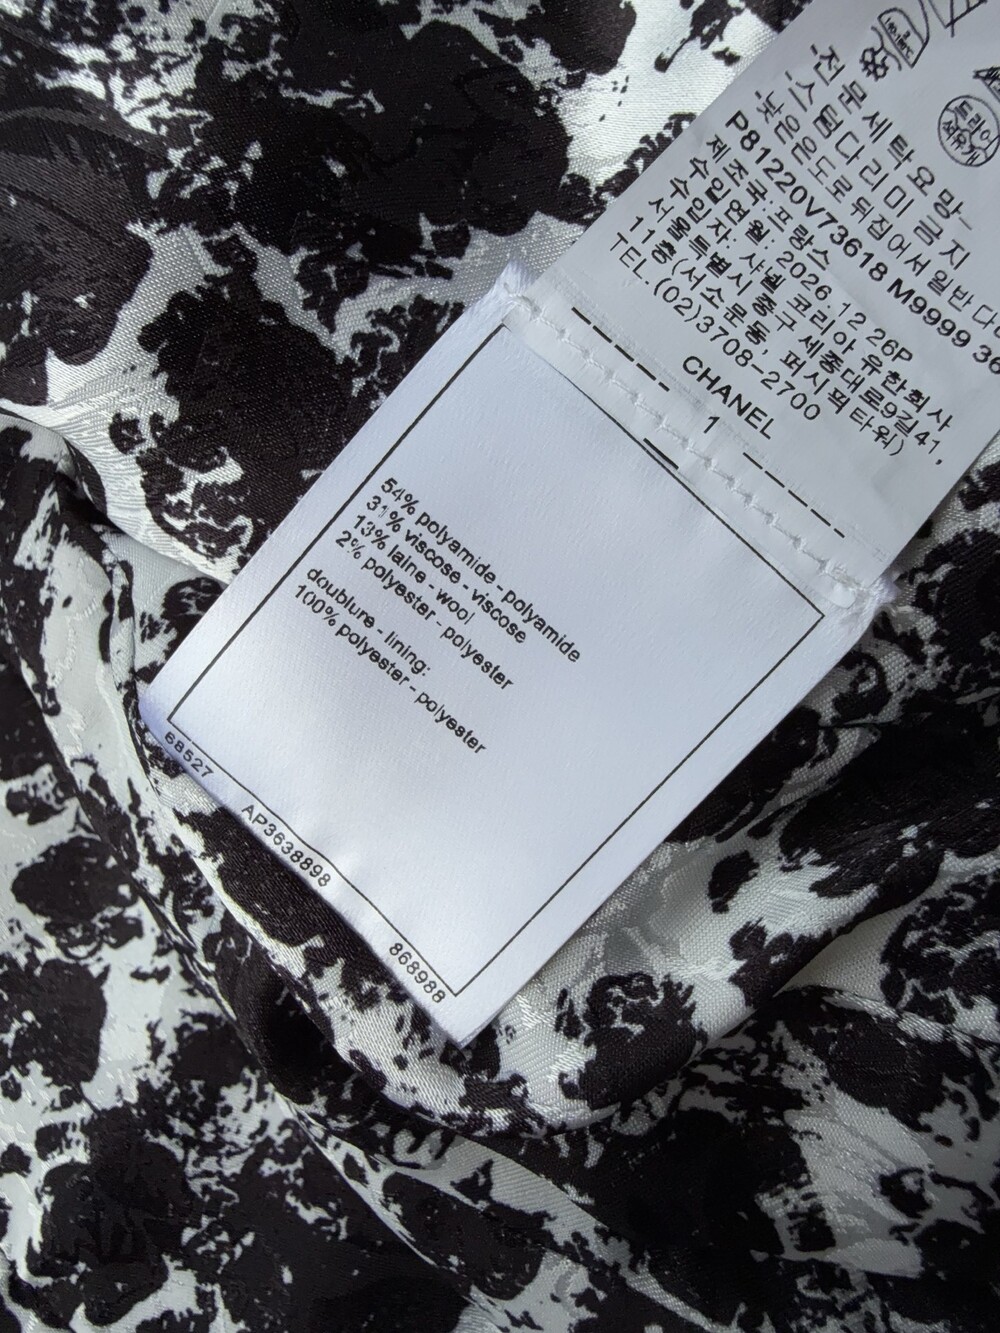 드라이
석유계
전문세탁요망
전스팀다리미금지
낮은온도로뒤집어서일반다
P81220V73618 M9999 36
제조국:프랑스
수입연월:2026.12 26P
수입자: 샤넬 코리아 유한회사
서울특별시 중구 세종대로9길41,
11층(서소문동, 퍼시픽타워)
TEL.(02)3708-2700
CHANEL
1
54% polyamide - polyamide
31% viscose - viscose
13% laine - wool
2% polyester - polyester
doublure - lining:
100% polyester - polyester
68527
AP3638898
868988